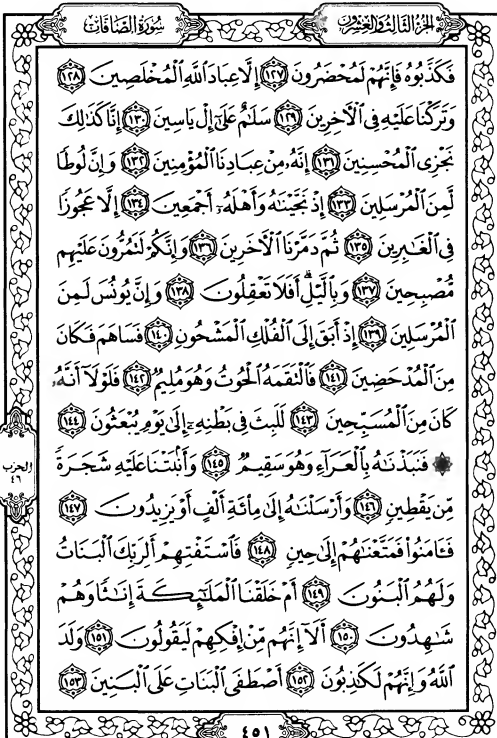 سُورَةُ الصَّافَّاتِ
الجُزْءُ الثَّالِثُ وَالعِشْرُونَ
فَكَذَّبُوهُ فَإِنَّهُمْ لَمُحْضَرُونَ ١٢٧ إِلَّا عِبَادَ ٱللَّهِ ٱلْمُخْلَصِينَ ١٢٨
وَتَرَكْنَا عَلَيْهِ فِى ٱلْءَاخِرِينَ ١٢٩ سَلَٰمٌ عَلَىٰٓ إِلْ يَاسِينَ ١٣٠ إِنَّا كَذَٰلِكَ
نَجْزِى ٱلْمُحْسِنِينَ ١٣١ إِنَّهُۥ مِنْ عِبَادِنَا ٱلْمُؤْمِنِينَ ١٣٢ وَإِنَّ لُوطًا
لَّمِنَ ٱلْمُرْسَلِينَ ١٣٣ إِذْ نَجَّيْنَٰهُ وَأَهْلَهُۥٓ أَجْمَعِينَ ١٣٤ إِلَّا عَجُوزًا
فِى ٱلْغَٰبِرِينَ ١٣٥ ثُمَّ دَمَّرْنَا ٱلْءَاخَرِينَ ١٣٦ وَإِنَّكُمْ لَتَمُرُّونَ عَلَيْهِم
مُّصْبِحِينَ ١٣٧ وَبِٱلَّيْلِ ۗ أَفَلَا تَعْقِلُونَ ١٣٨ وَإِنَّ يُونُسَ لَمِنَ
ٱلْمُرْسَلِينَ ١٣٩ إِذْ أَبَقَ إِلَى ٱلْفُلْكِ ٱلْمَشْحُونِ ١٤٠ فَسَاهَمَ فَكَانَ
مِنَ ٱلْمُدْحَضِينَ ١٤١ فَٱلْتَقَمَهُ ٱلْحُوتُ وَهُوَ مُلِيمٌ ١٤٢ فَلَوْلَآ أَنَّهُۥ
كَانَ مِنَ ٱلْمُسَبِّحِينَ ١٤٣ لَلَبِثَ فِى بَطْنِهِۦٓ إِلَىٰ يَوْمِ يُبْعَثُونَ ١٤٤
۞ فَنَبَذْنَٰهُ بِٱلْعَرَآءِ وَهُوَ سَقِيمٌ ١٤٥ وَأَنۢبَتْنَا عَلَيْهِ شَجَرَةً
مِّن يَقْطِينٍ ١٤٦ وَأَرْسَلْنَٰهُ إِلَىٰ مِا۟ئَةِ أَلْفٍ أَوْ يَزِيدُونَ ١٤٧
فَـَٔامَنُوا۟ فَمَتَّعْنَٰهُمْ إِلَىٰ حِينٍ ١٤٨ فَٱسْتَفْتِهِمْ أَلِرَبِّكَ ٱلْبَنَاتُ
وَلَهُمُ ٱلْبَنُونَ ١٤٩ أَمْ خَلَقْنَا ٱلْمَلَٰٓئِكَةَ إِنَٰثًا وَهُمْ
شَٰهِدُونَ ١٥٠ أَلَآ إِنَّهُم مِّنْ إِفْكِهِمْ لَيَقُولُونَ ١٥١ وَلَدَ
ٱللَّهُ وَإِنَّهُمْ لَكَٰذِبُونَ ١٥٢ أَصْطَفَى ٱلْبَنَاتِ عَلَى ٱلْبَنِينَ ١٥٣
الحزب
٤٦
٤٥١